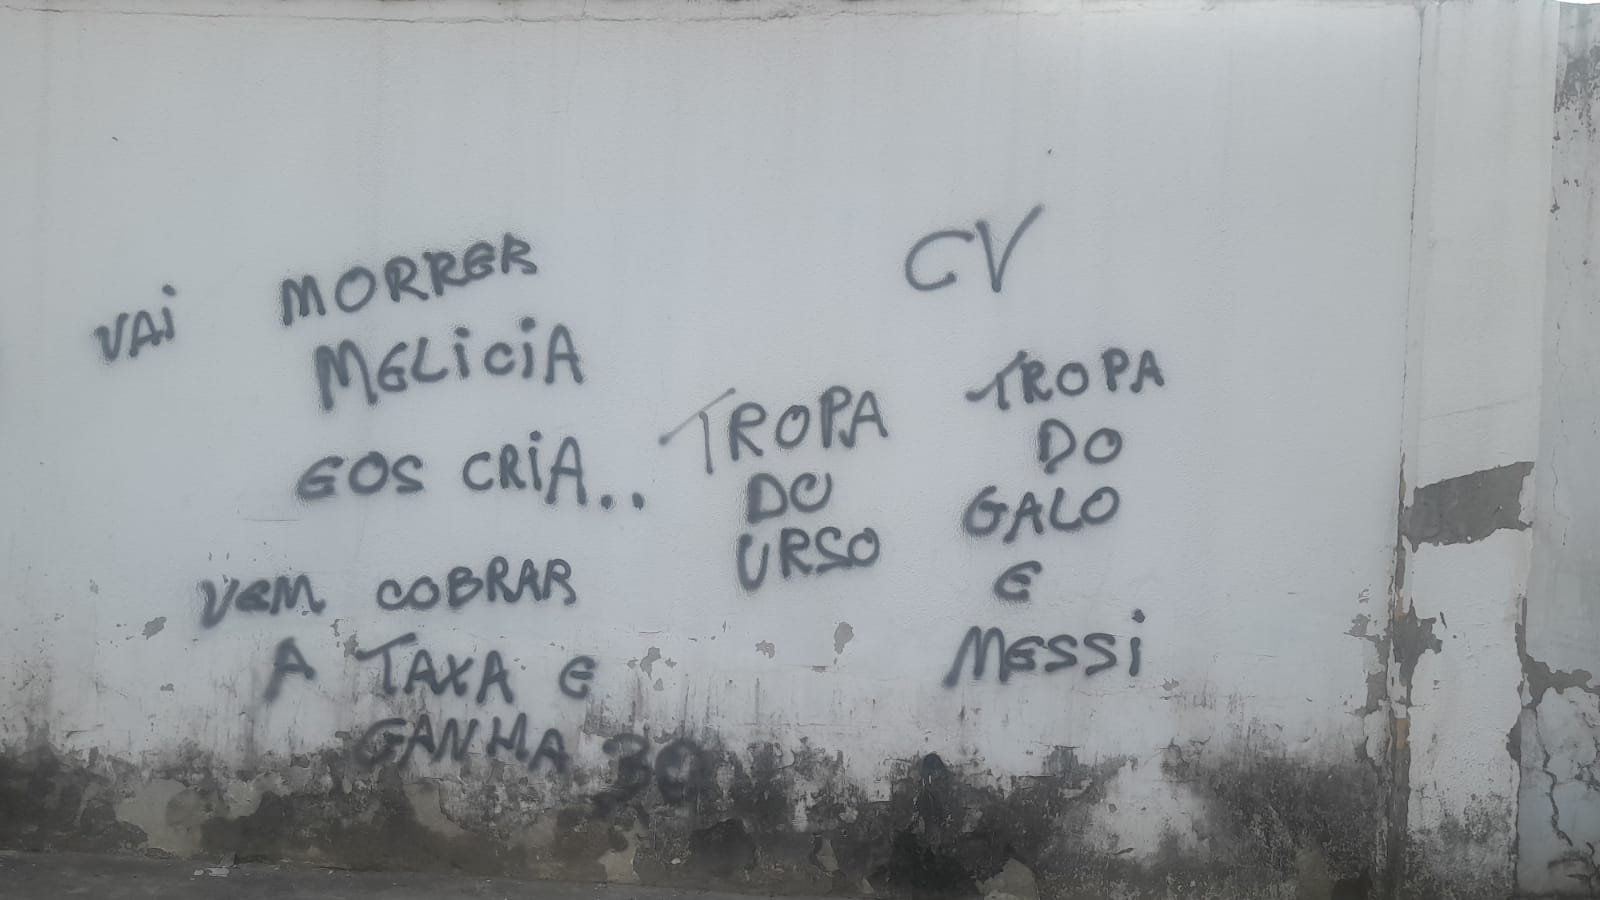 VAi MORRER
MELiCiA
EOS CRiA..
VEM COBRAR
A TAXA E
GANHA 30
TROPA
DO
URSO
CV
TROPA
DO
GALO
E
MESSi